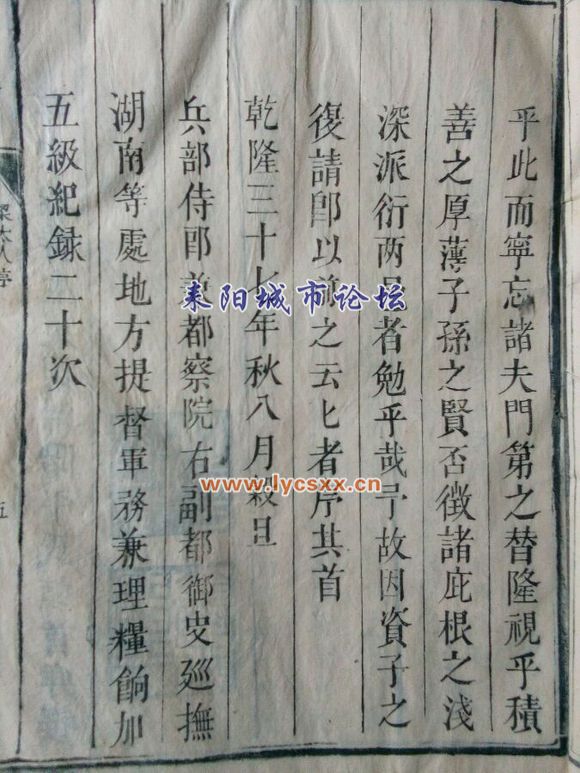 乎此而寧忘諸夫門第之替隆視乎積
善之厚薄子孫之賢否徵諸庇根之淺
深派衍两者勉乎哉予故因資子之
復請卽以之云匕者序其首
乾隆三十七年秋八月穀旦
兵部侍郎兼都察院右副都御史廵撫
湖南等處地方提督軍務兼理糧餉加
五級紀録二十次
梁大人序
五
耒阳城市论坛
www.lycsxx.cn